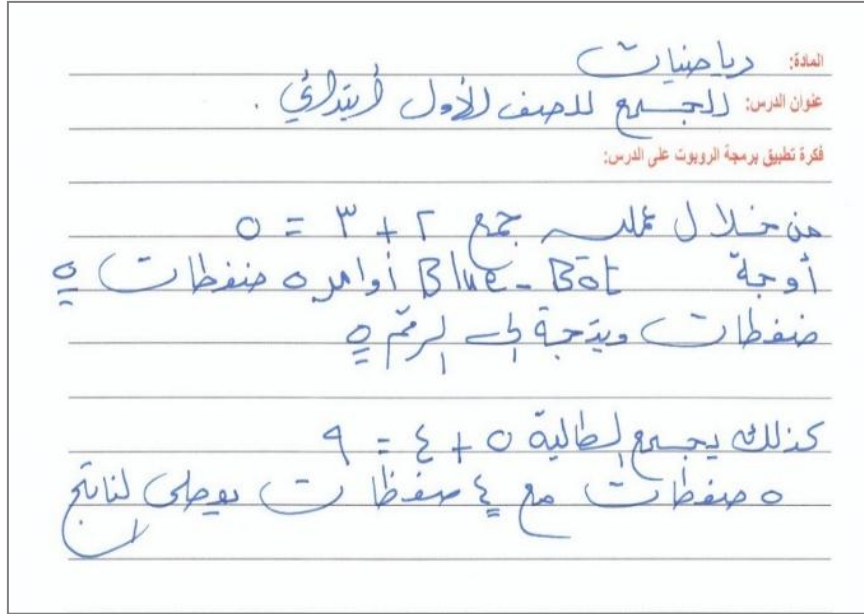 المادة: رياضيات
عنوان الدرس: الجمع للصف الأول ابتدائي .
فكرة تطبيق برمجة الروبوت على الدرس:
من خلال عملية جمع ٢ + ٣ = ٥
أوجة Blue-Bot أوامر ٥ ضغطات ٥
ضغطات ويتجة إلى الرقم ٥
كذلك يجمع الطالبة ٥ + ٤ = ٩
٥ ضغطات مع ٤ ضغطات يوصلى لناتج